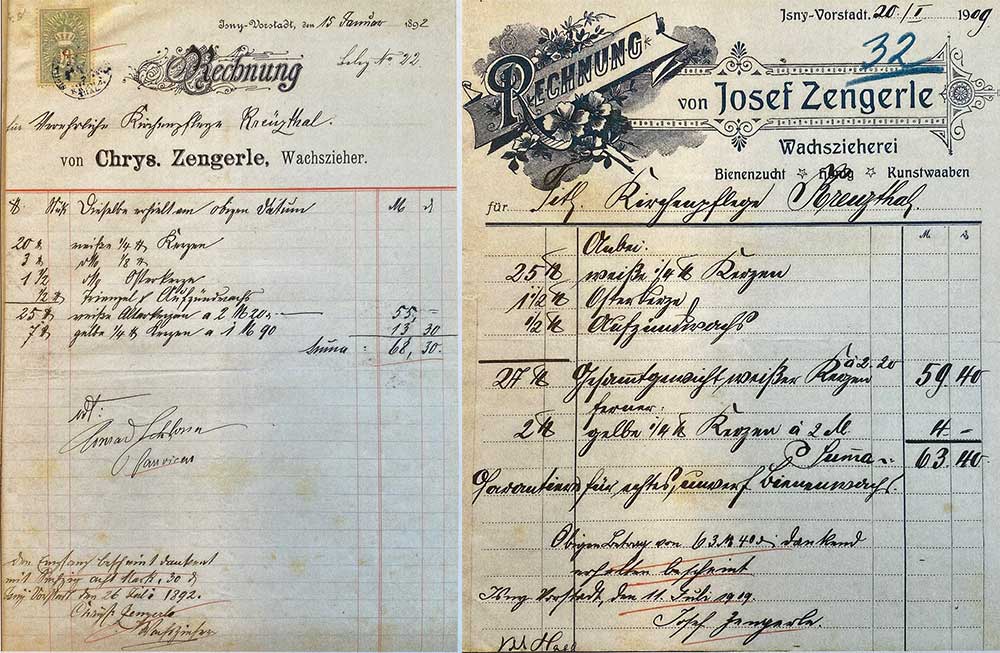 Isny-Vorstadt, den 15 Januar 1892
Rechnung
Beleg No 22
für Verehrliche Kirchenpflege Kreuzthal.
von Chrys. Zengerle, Wachszieher.
Dieselbe erhielt am obigen Datum M
20 weiße 1/4 Kerzen
3 1/8
1 1/2 Osterkerze
1/2 Aufzündwachs
25 weiße Altarkerzen a 2 M 20 55,-
7 gelbe 1/4 Kerzen a 1 M 90 13 30
Suma: 68,30.
den Empfang bescheint dankend
mit Sechzig acht Mark, 30
Isny Vorstadt den 26 Juli 1892.
Chrys. Zengerle
Wachszieher
Isny-Vorstadt. 20/I 1909
32
RECHNUNG
von Josef Zengerle
Wachszieherei
Bienenzucht Honig Kunstwaaben
für Kirchenpflege Kreuzthal
M.
Anbei:
25 weiße 1/4 Kerzen
1 1/2 Osterkerze
1/2 Aufzündwachs
à 2.20
27 Gesamtgewicht weißer Kerzen 59 40
ferner:
2 gelbe 1/4 Kerzen à 2 M 4 -
Suma: 63.40.
Garantiere für echtes, unverf. Bienenwachs.
Obigen Betrag von 63 M 40 dankend
erhalten bescheint
Isny Vorstadt, den 11. Juli 1909.
Josef Zengerle.